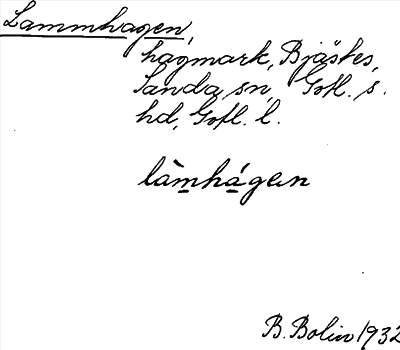 Lammhagen,
hagmark, Bjästes,
Sanda sn, Gotl. s.
hd, Gotl. l.
làmhágen
B. Bolin 1932